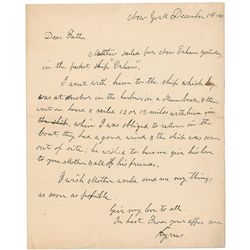 New York December 1st
Dear Father,
sailed for New Orleans yesterday
in the packet ship Orleans"
I went with him to the ship which lay
was at anchor in the harbour on a Steamboat, & then
went on board & sailed 12 or 13 miles with him in
the ship, when I was obliged to return in the
boat, they had a good wind & the ship was soon
out of site; he wished to have me give his love
to you Mother & all his friends.
I wish Mother would send on my things
as soon as possible.
Give my love to all
In hast Ever your affec son
Cyrus